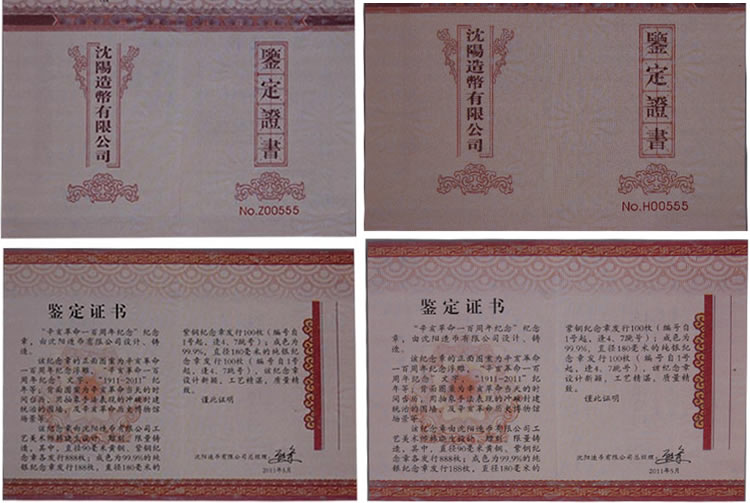 沈陽造幣有限公司
鑒定證書
No.Z00555
沈陽造幣有限公司
鑒定證書
No.H00555
鉴定证书
“辛亥革命一百周年纪念”纪念
章，由沈阳造币有限公司设计、铸
造。
该纪念章的正面图案为辛亥革命
一百周年纪念浮雕、“辛亥革命一百
周年纪念”文字、“1911-2011”纪
年等；背面图案为辛亥革命当天的时
间 历、用抽象手法表现的冲破封建
统治的围墙、及辛亥革命历史博物馆
场景等。
该纪念章由沈阳造币有限公司
工艺美术师 设计、雕刻，限量铸
造。其中，直径90毫米黄铜、紫铜纪
念章各发行888枚；成色为99.9%的纯
银纪念章发行188枚，直径180毫米的
紫铜纪念章发行100枚（编号自
1号起，逢4、7跳号）；成色为
99.9%、直径180毫米的纯银纪
念章发行100枚（编号自1号
起，逢4、7跳号）。该纪念章
设计新颖，工艺精湛，质量精
致。
谨此证明
沈阳造币有限公司总经理
2011年5月
鉴定证书
“辛亥革命一百周年纪念”纪念
章，由沈阳造币有限公司设计、铸
造。
该纪念章的正面图案为辛亥革命
一百周年纪念浮雕、“辛亥革命一百
周年纪念”文字、“1911-2011”纪
年等；背面图案为辛亥革命当天的时
间 历、用抽象手法表现的冲破封建
统治的围墙、及辛亥革命历史博物馆
场景等。
该纪念章由沈阳造币有限公司
工艺美术师 设计、雕刻，限量铸
造。其中，直径90毫米黄铜、紫铜纪
念章各发行888枚；成色为99.9%的纯
银纪念章发行188枚，直径180毫米的
紫铜纪念章发行100枚（编号自
1号起，逢4、7跳号）；成色为
99.9%、直径180毫米的纯银纪
念章发行100枚（编号自1号
起，逢4、7跳号）。该纪念章
设计新颖，工艺精湛，质量精
致。
谨此证明
沈阳造币有限公司总经理
2011年5月